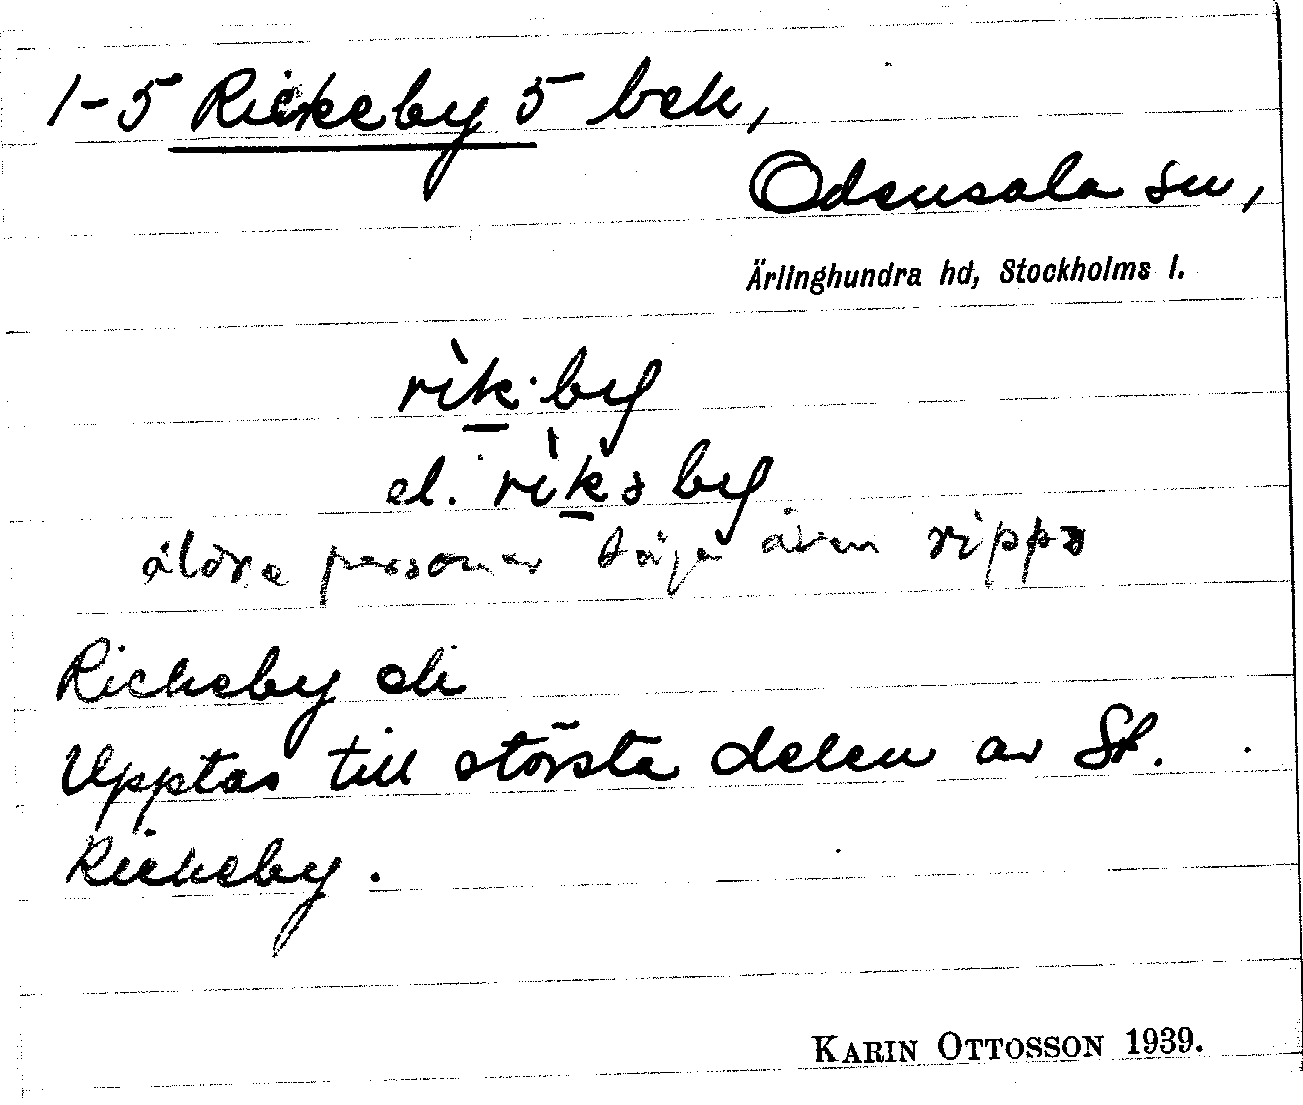 1-5 Rickeby 5 bek,
Odensala sn,
Ärlinghundra hd, Stockholms l.
rìk·by
el. rìksby
äldre personer säga även rippə
Rickeby ek
Upptas till största delen av St.
Rickeby.
KARIN OTTOSSON 1939.